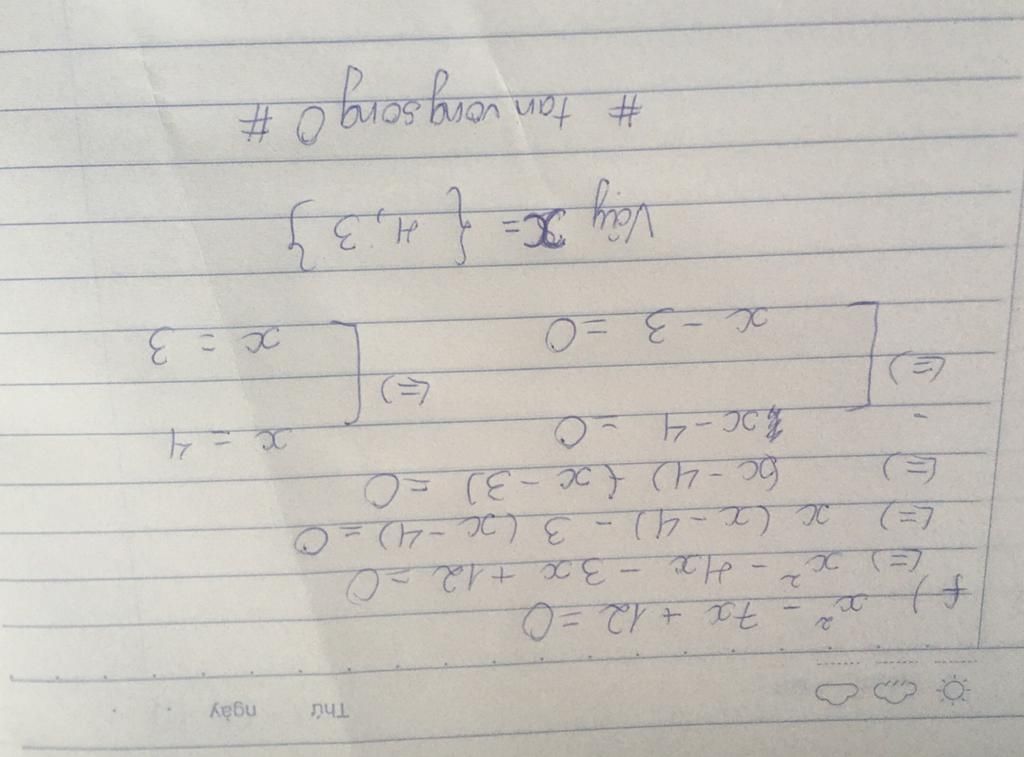 Thứ ngày
f) x² - 7x + 12 = 0
(=) x² - 4x - 3x + 12 = 0
(=) x (x - 4) - 3 (x - 4) = 0
(=) (x - 4) (x - 3) = 0
x - 4 = 0 x = 4
(=) (=)
x - 3 = 0 x = 3
Vậy x = { 4, 3 }
# tan vong song 0 #